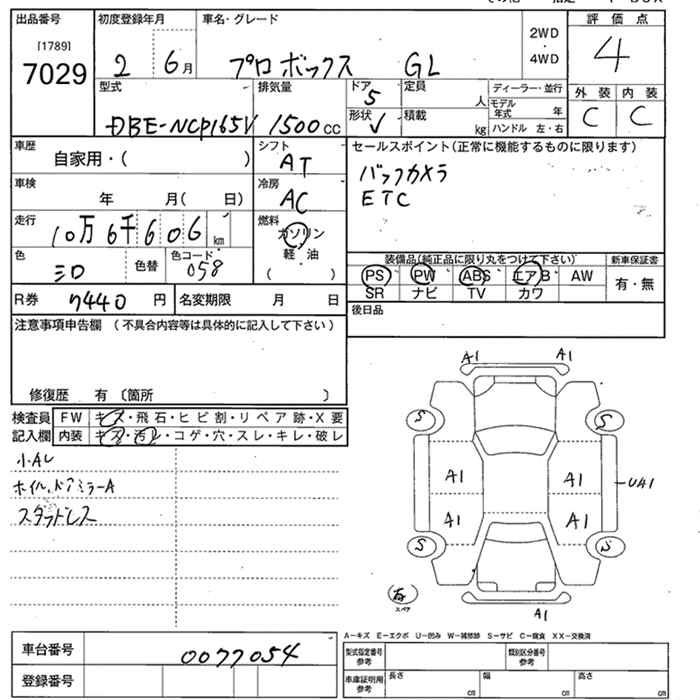 出品番号
[1789]
7029
初度登録年月
2 6月
車名・グレード
プロボックス GL
2WD
・
4WD
評価点
4
外装 内装
C C
型式
DBE-NCP165V
排気量
1500cc
ドア
5
形状
定員
人
積載
kg
ディーラー・並行
モデル年式 年
ハンドル 左・右
車歴
自家用・(
シフト
AT
セールスポイント(正常に機能するものに限ります)
バックカメラ
ETC
車検
年 月( 日)
冷房
AC
走行
10万6千606km
燃料
ガソリン
軽・油
( )
色
シロ
色替
色コード
058
装備品(純正品に限り丸をつけて下さい)
新車保証書
PS PW ABS エアB AW
有・無
SR ナビ TV カワ
R券 7440円
名変期限 月 日
後日品
注意事項申告欄 (不具合内容等は具体的に記入して下さい)
修復歴 有 〔箇所 〕
検査員 FW キズ・飛石・ヒビ割・リペア跡・X要
記入欄 内装 キズ・汚レ・コゲ・穴・スレ・キレ・破レ
小AU
ホイル、ドアミラーA
スタッドレス
A1 A1
S S
A1 A1 UA1
A1 A1
S S
有
スペア
A1
A−キズ E−エクボ U−凹み W−補修跡 S−サビ C−腐食 XX−交換済
車台番号
0077054
登録番号
型式指定番号
参考
類別区分番号
参考
車庫証明用
参考
長さ cm
幅 cm
高さ cm